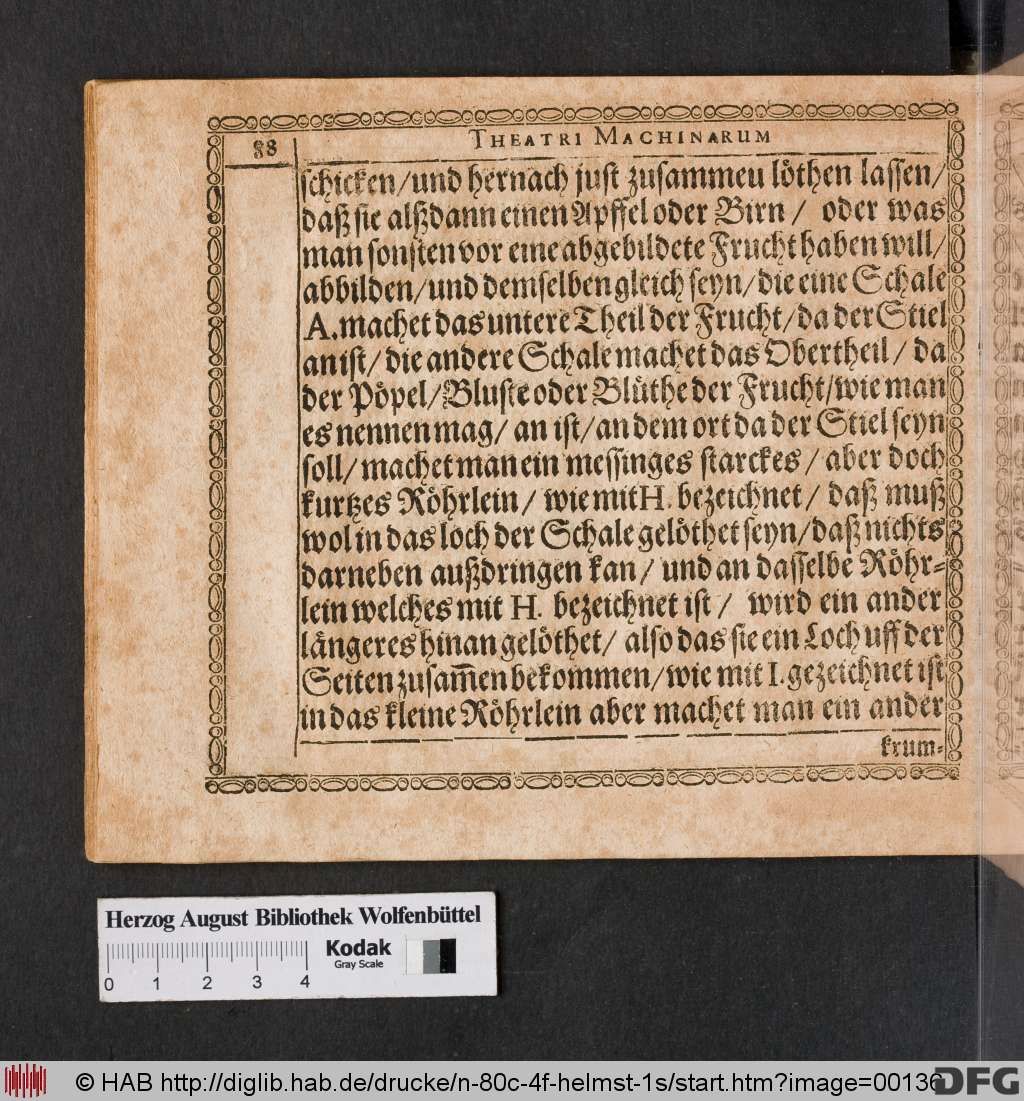 88
THEATRI MACHINARUM
schicken/und hernach just zusammeu löthen lassen/
daß sie alßdann einen Apffel oder Birn / oder was
man sonsten vor eine abgebildete Frucht haben will/
abbilden/und demselben gleich seyn/die eine Schale
A. machet das untere Theil der Frucht/da der Stiel
an ist/ die andere Schale machet das Obertheil / da
der Pöpel/Bluste oder Blüthe der Frucht/wie man
es nennen mag/ an ist/an dem ort da der Stiel seyn
soll/ machet man ein messinges starckes / aber doch
kurtzes Röhrlein / wie mit H. bezeichnet / daß muß
wol in das loch der Schale gelöthet seyn/daß nichts
darneben außdringen kan/ und an dasselbe Röhr-
lein welches mit H. bezeichnet ist / wird ein ander
längeres hinan gelöthet/ also das sie ein Loch uff der
Seiten zusam̄en bekommen/wie mit I. gezeichnet ist
in das kleine Röhrlein aber machet man ein ander
krum-
Herzog August Bibliothek Wolfenbüttel
Kodak
Gray Scale
0 1 2 3 4
© HAB http://diglib.hab.de/drucke/n-80c-4f-helmst-1s/start.htm?image=00136
DFG